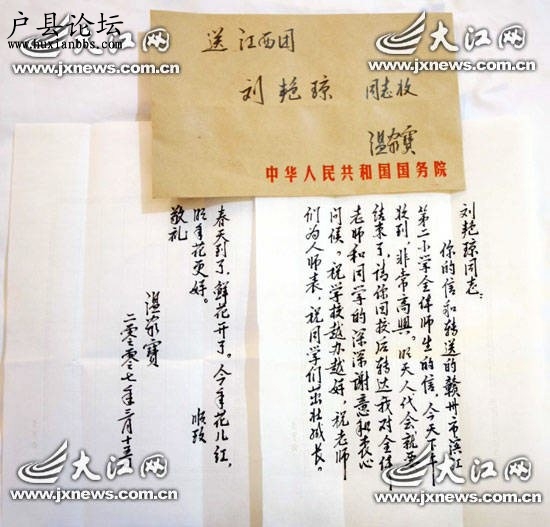 户县论坛
www.huxianbbs.com
大江网
www.jxnews.com.cn
大江网
www.jxnews.com.cn
送 江西团
刘艳琼 同志收
温家宝
中华人民共和国国务院
刘艳琼同志:
你的信和转送的赣州市滨江
第二小学全体师生的信,今天下午
收到,非常高兴。明天人代会就要
结束了,请你回校后转达我对全体
老师和同学的深深谢意和衷心
问候。祝学校越办越好,祝老师
们为人师表,祝同学们茁壮成长。
春天到了,鲜花开了。今年花儿红,
明年花更好。 顺致
敬礼
温家宝
二零零七年三月十五日
大江网
www.jxnews.com.cn
大江网
www.jxnews.com.cn